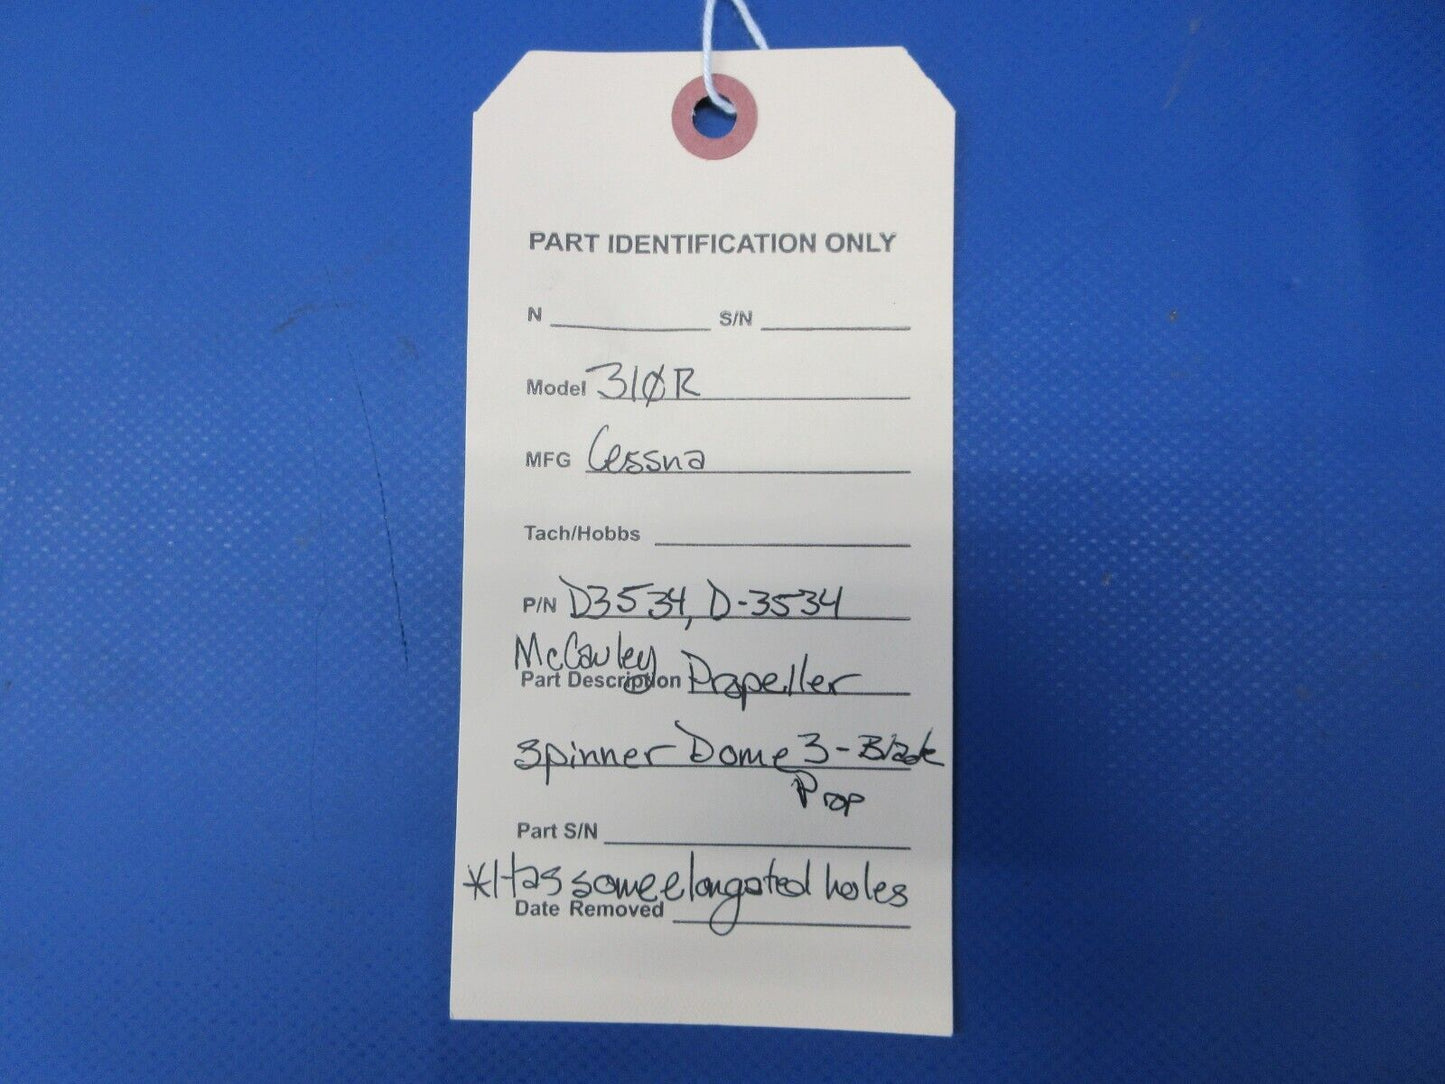 PART IDENTIFICATION ONLY
N S/N
Model 310R
MFG Cessna
Tach/Hobbs
P/N D3534, D-3534
McCauley
Part Description Propeller
Spinner Dome 3-Blade
Prop
Part S/N
*Has some elongated holes
Date Removed